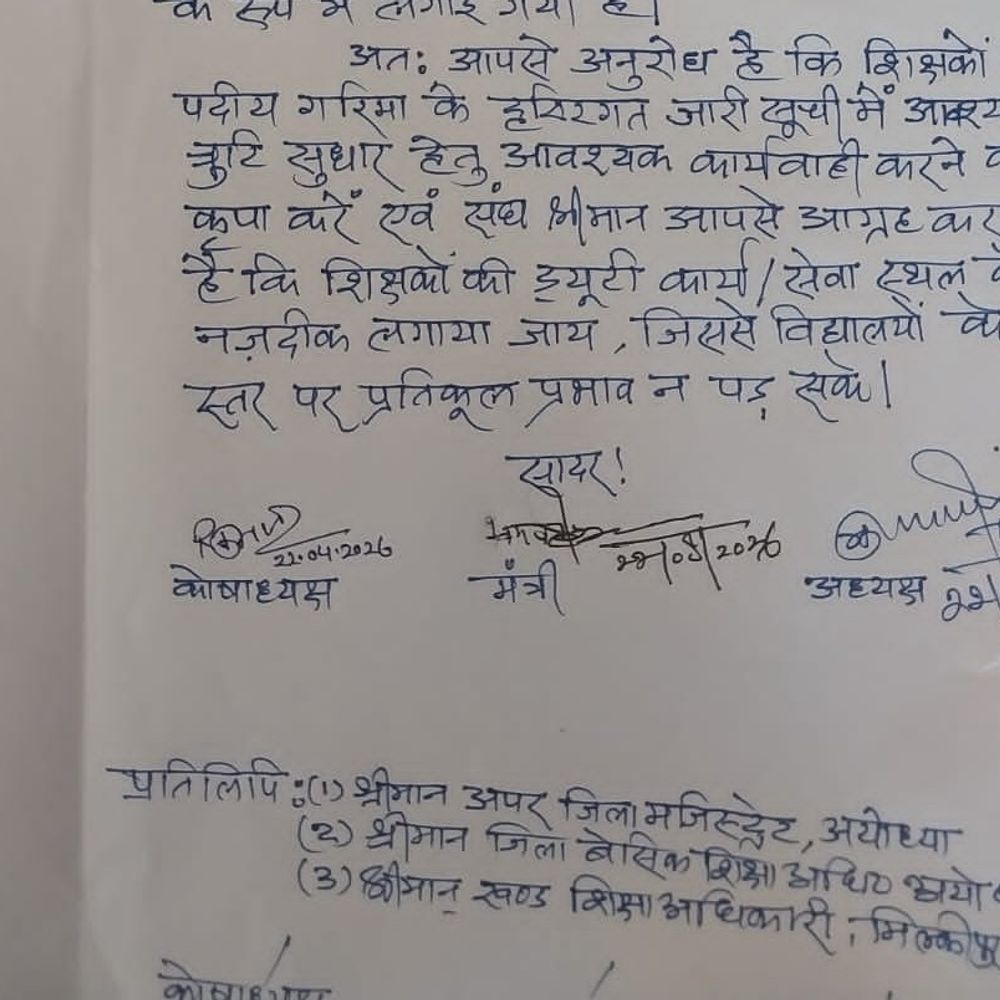 के रूप में लगाई गयी है।
अत: आपसे अनुरोध है कि शिक्षकों
पदीय गरिमा के दृष्टिगत जारी सूची में आवश्य
त्रुटि सुधार हेतु आवश्यक कार्यवाही करने
कृपा करें एवं संघ श्रीमान आपसे आग्रह कर
है कि शिक्षकों की ड्यूटी कार्य/सेवा स्थल के
नज़दीक लगाया जाय, जिससे विद्यालयों के
स्तर पर प्रतिकूल प्रभाव न पड़ सके।
सादर!
22.04.2026 22/04/2026
कोषाध्यक्ष मंत्री अध्यक्ष
प्रतिलिपि:(1) श्रीमान अपर जिला मजिस्ट्रेट, अयोध्या
(2) श्रीमान जिला बेसिक शिक्षा अधि० अयो
(3) श्रीमान खण्ड शिक्षा अधिकारी, मिल्कीपु
कोषाध्यक्ष